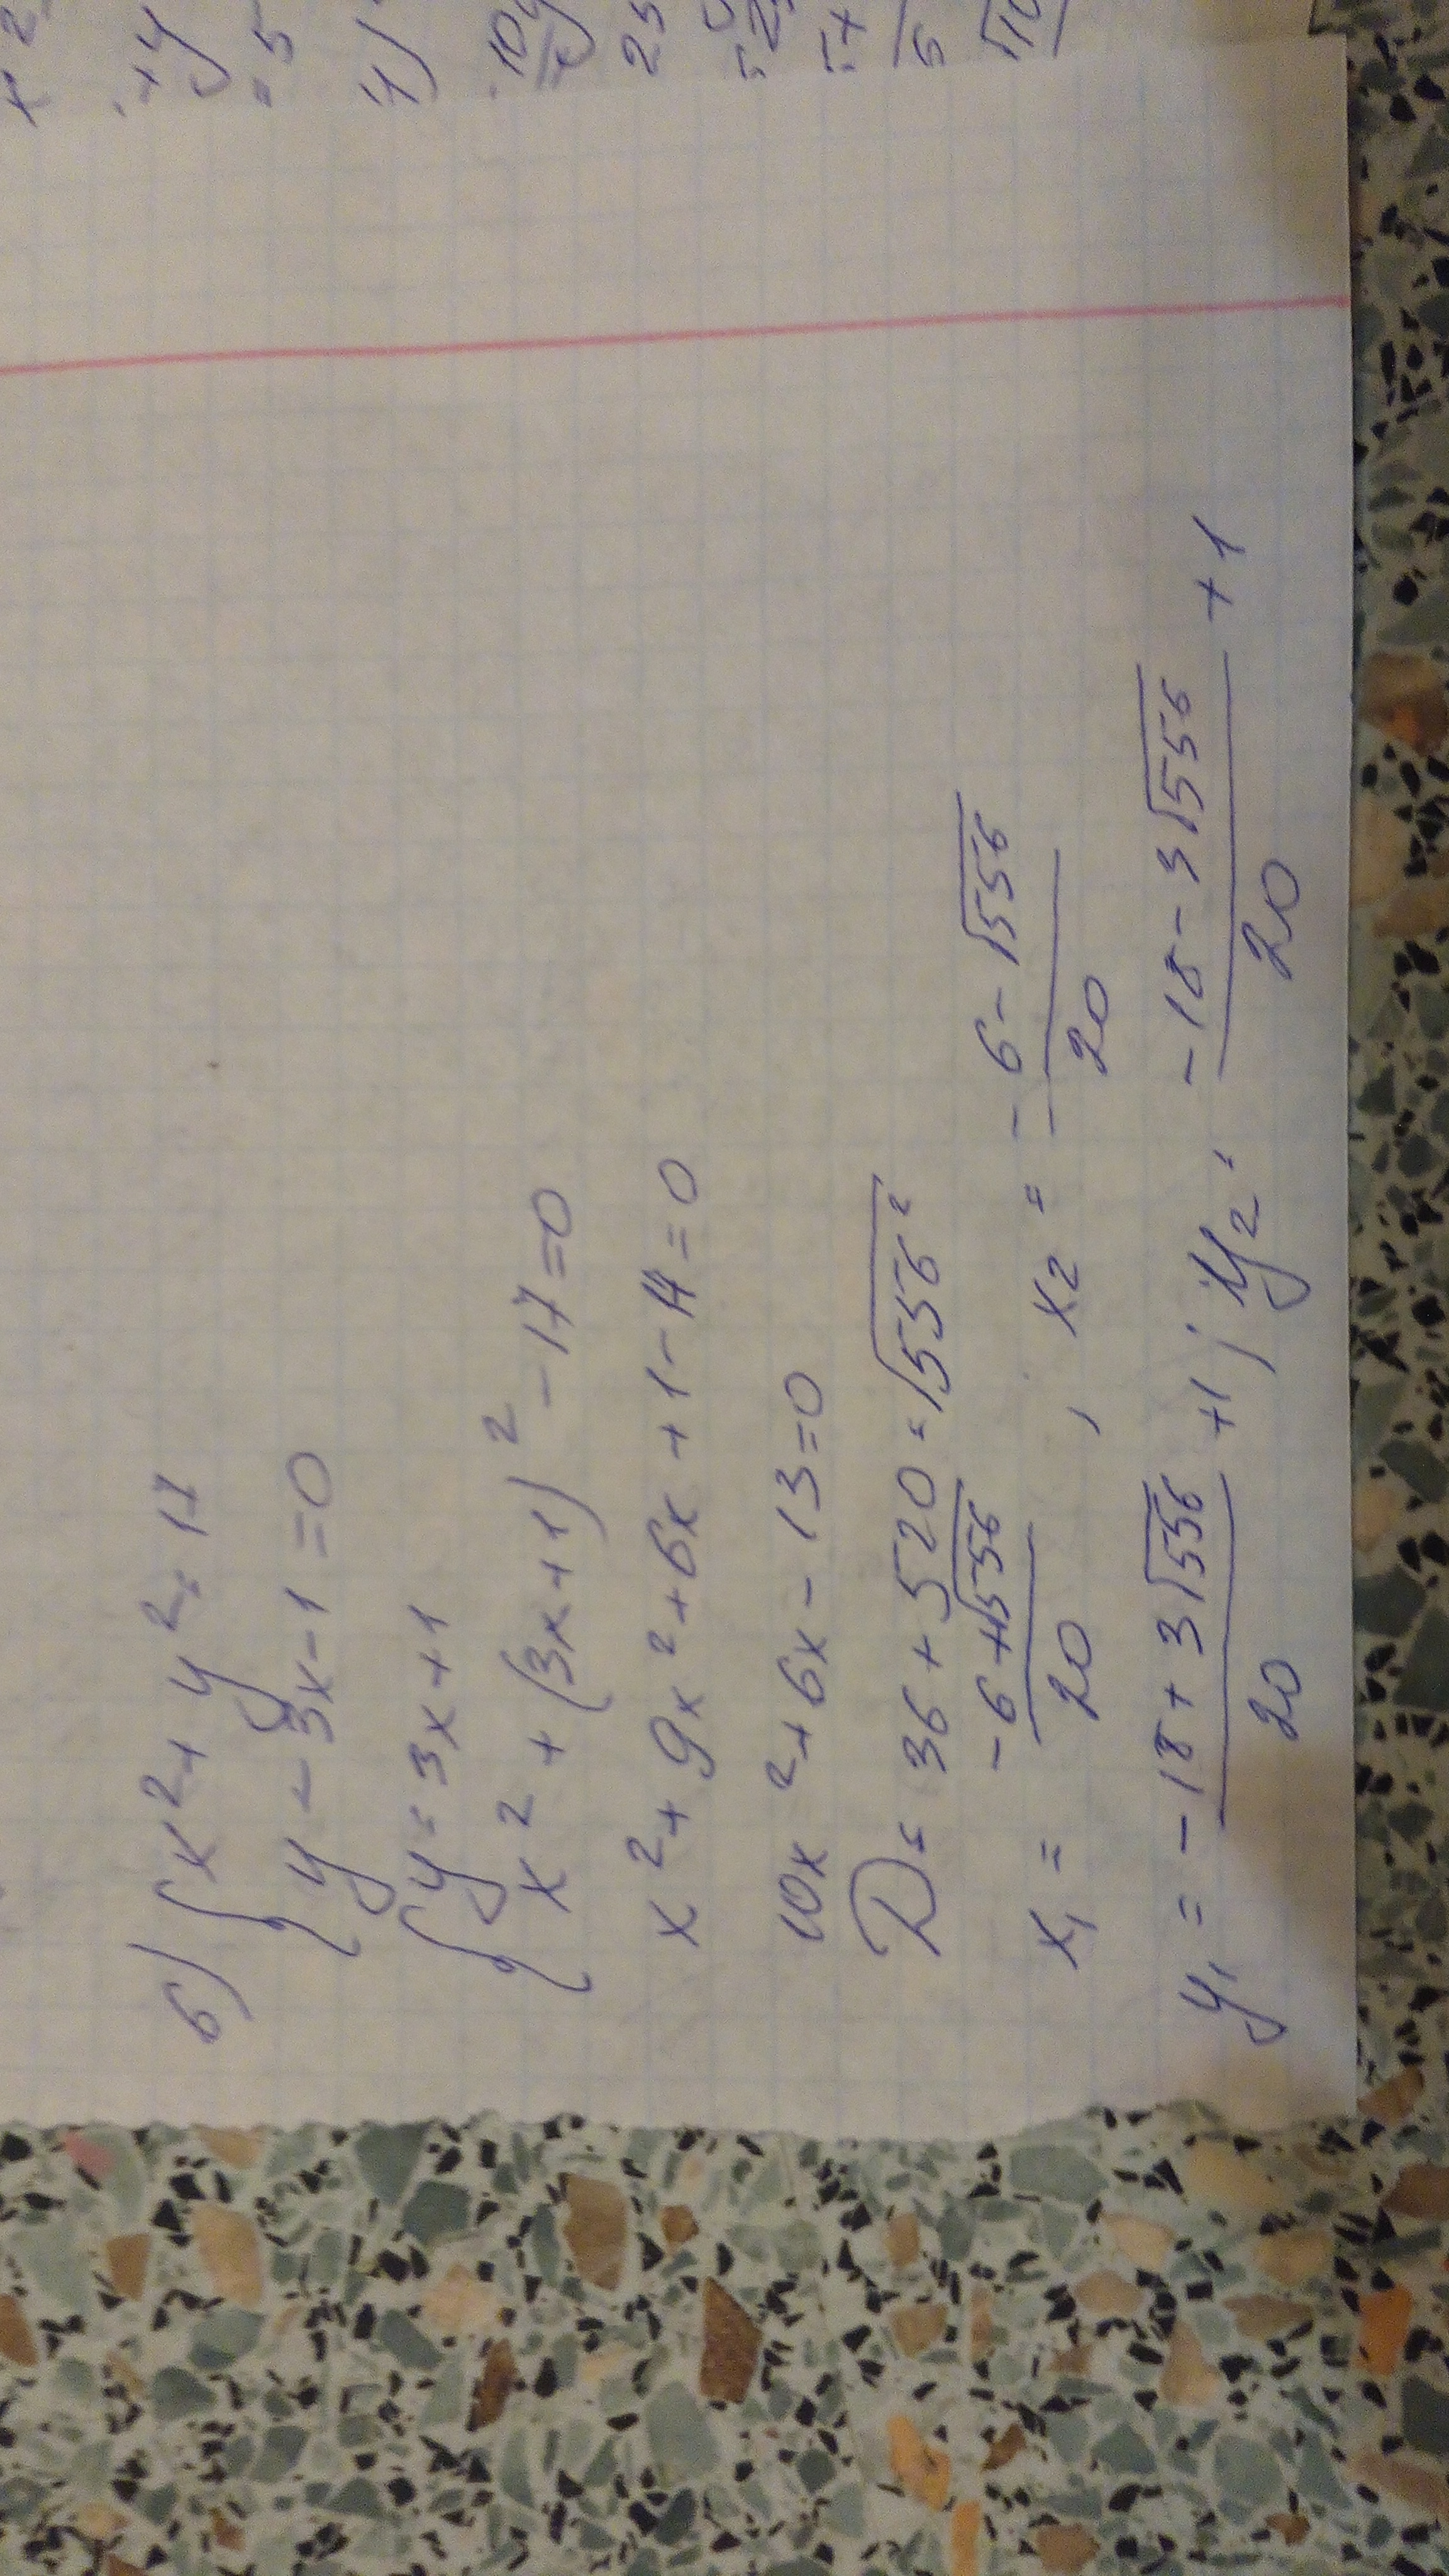 б) { x² + y² = 17
{ y - 3x - 1 = 0
{ y = 3x + 1
x² + (3x + 1)² - 17 = 0
x² + 9x² + 6x + 1 - 14 = 0
10x² + 6x - 13 = 0
D = 36 + 520 = √556²
x₁ = -6 + √556 / 20 , x₂ = -6 - √556 / 20
y₁ = -18 + 3√556 / 20 + 1 ; y₂ = -18 - 3√556 / 20 + 1